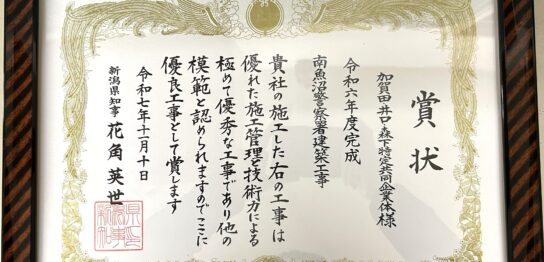 賞状
加賀田・井口・森下特定共同企業体様
令和六年度完成
南魚沼警察署建築工事
貴社の施工した右の工事は
優れた施工管理と技術力による
極めて優秀な工事であり他の
模範と認められますのでここに
優良工事として賞します
令和七年十一月十日
新潟県知事 花角英世